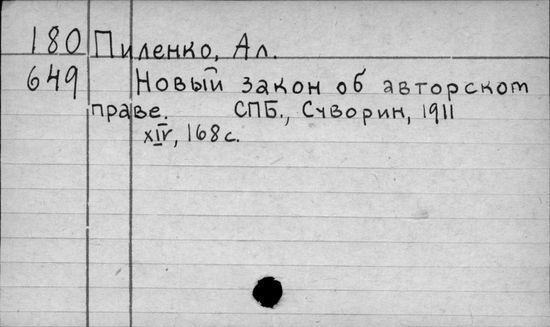 180 Пиленко, Ал.
649 Новый закон об авторском
праве. СПБ., Суворин, 1911
XIV, 168 с.